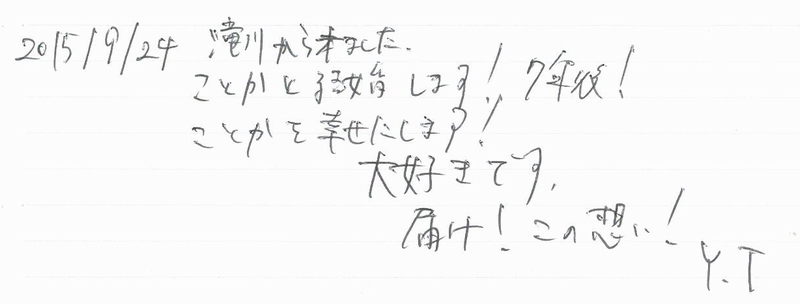 2015/9/24 滝川から来ました.
ことかと結婚します! 7年後!
ことかを幸せにします!
大好きです.
届け! この想い!
Y.T